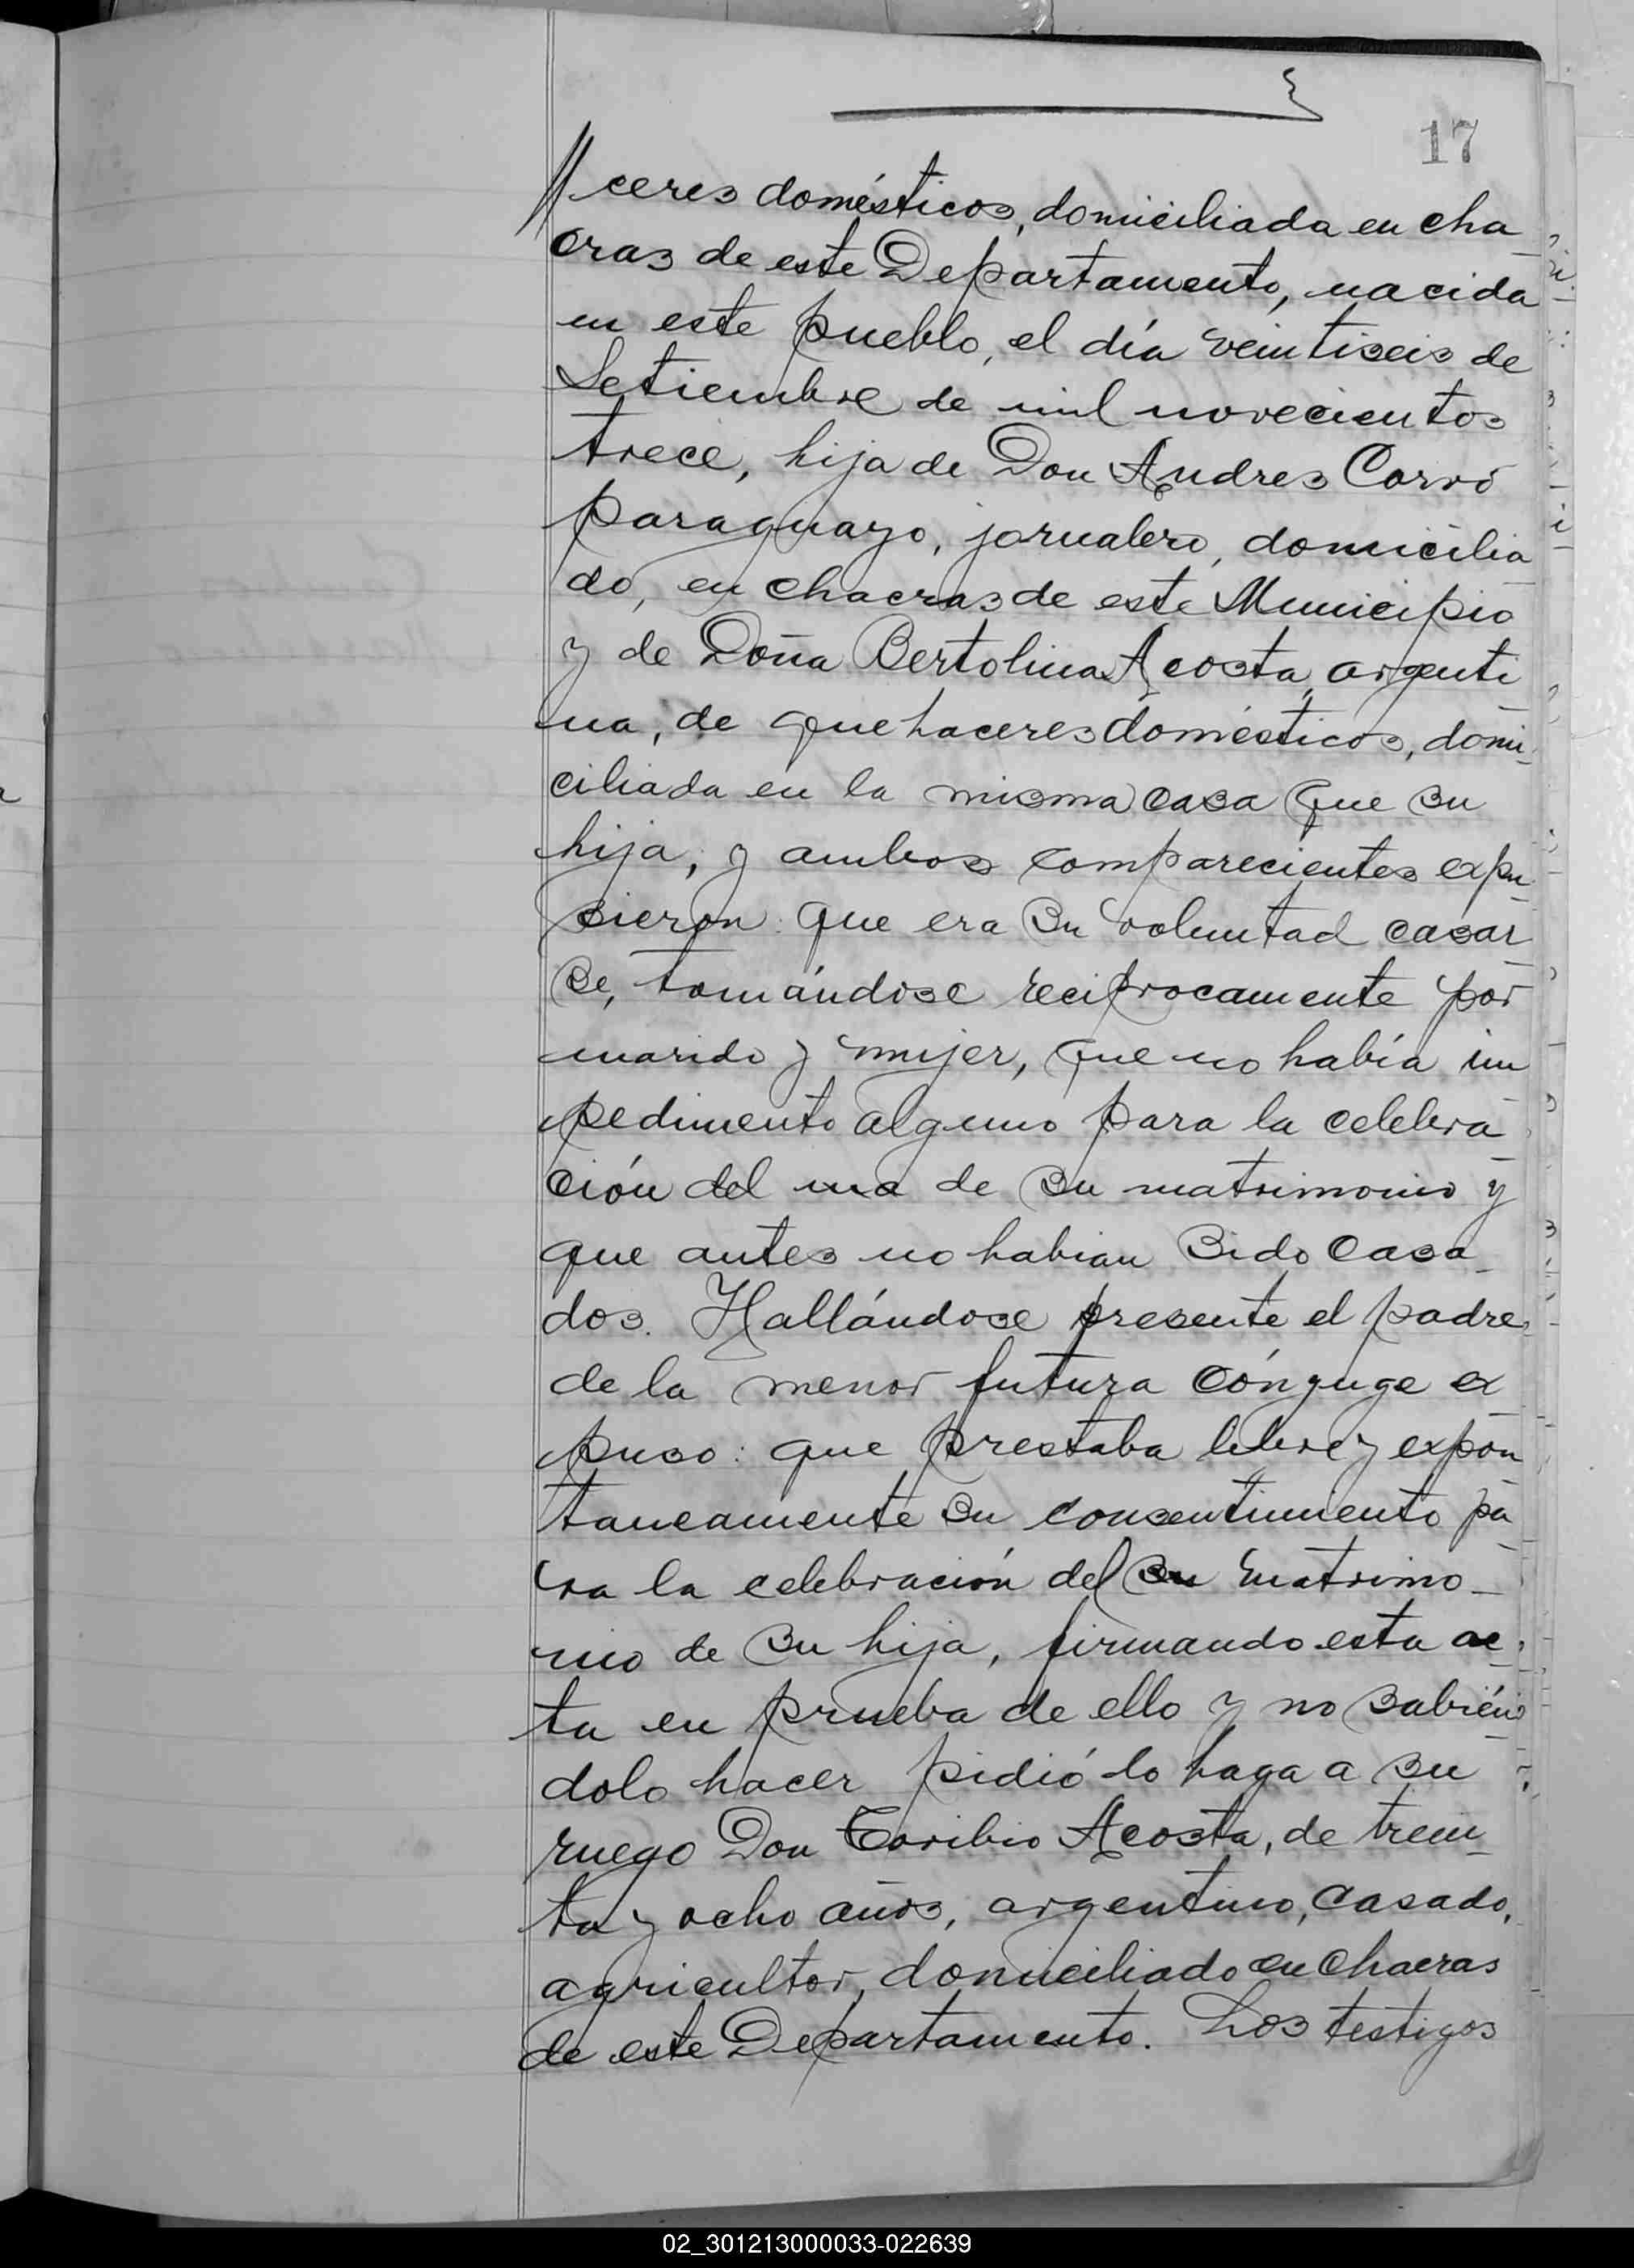 17
ceres domésticos, domiciliada en cha
cras de este Departamento, nacida
en este pueblo, el día veintiseis de
Setiembre de mil novecientos
trece, hija de Don Andres Corvo
paraguayo, jornalero, domicilia
do, en chacras de este Municipio
y de Doña Bertolina Acosta, argenti
na, de que haceres domésticos, domi
ciliada en la misma casa que su
hija; y ambos comparecientes expu
sieron: que era su voluntad casar
se, tomándose reciprocamente por
marido y mujer, que no había im
pedimento alguno para la celebra
ción del de su matrimonio y
que antes no habian sido casa
dos. Hallándose presente el padre
de la menor futura cónyuge ex
puso: que prestaba libre y expon
taneamente su consentimiento pa
ra la celebración del su matrimo
nio de su hija, firmando esta ac
ta en prueba de ello y no sabién
dolo hacer pidió lo haga a su
ruego Don Toribio Acosta, de trein
ta y ocho años, argentino, casado,
agricultor, domiciliado en chacras
de este Departamento. Los testigos
02_301213000033-022639